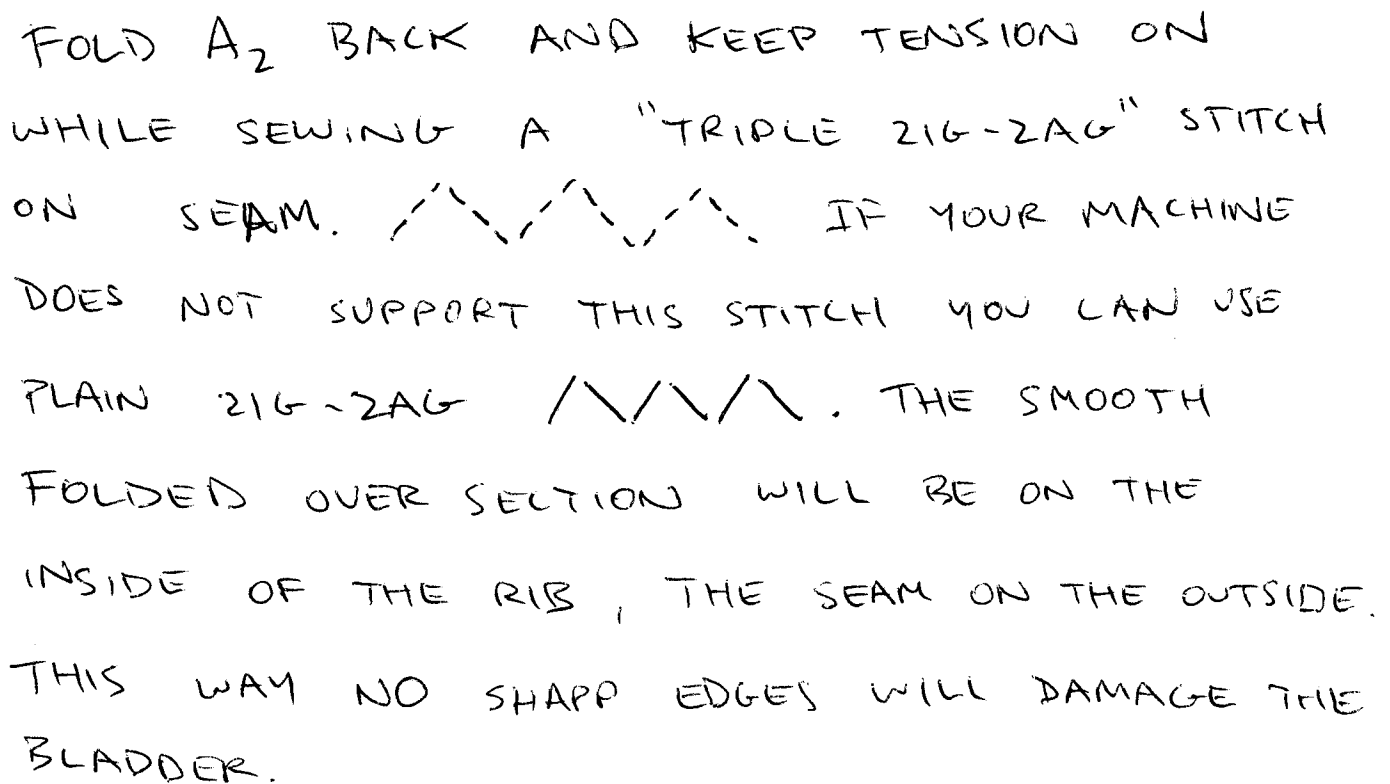 FOLD A₂ BACK AND KEEP TENSION ON
WHILE SEWING A "TRIPLE ZIG-ZAG" STITCH
ON SEAM. IF YOUR MACHINE
DOES NOT SUPPORT THIS STITCH YOU CAN USE
PLAIN ZIG-ZAG . THE SMOOTH
FOLDED OVER SECTION WILL BE ON THE
INSIDE OF THE RIB, THE SEAM ON THE OUTSIDE.
THIS WAY NO SHARP EDGES WILL DAMAGE THE
BLADDER.